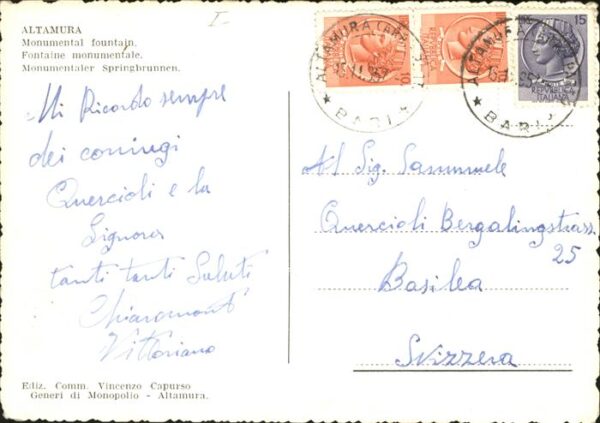 I
ALTAMURA
Monumental fountain.
Fontaine monumentale.
Monumentaler Springbrunnen.
Mi Ricordo sempre
dei coniugi
Quercioli e la
Signora
tanti tanti Saluti
Chiaromonti
Vittoriano
Ediz. Comm. Vincenzo Capurso
Generi di Monopolio - Altamura.
ALTAMURA
★ BARI ★
ALTAMURA
★ BARI
15
REPVBBLICA
ITALIANA
Al Sig. Sammuele
Quercioli Bergalingstrass
25
Basilea
Svizzera